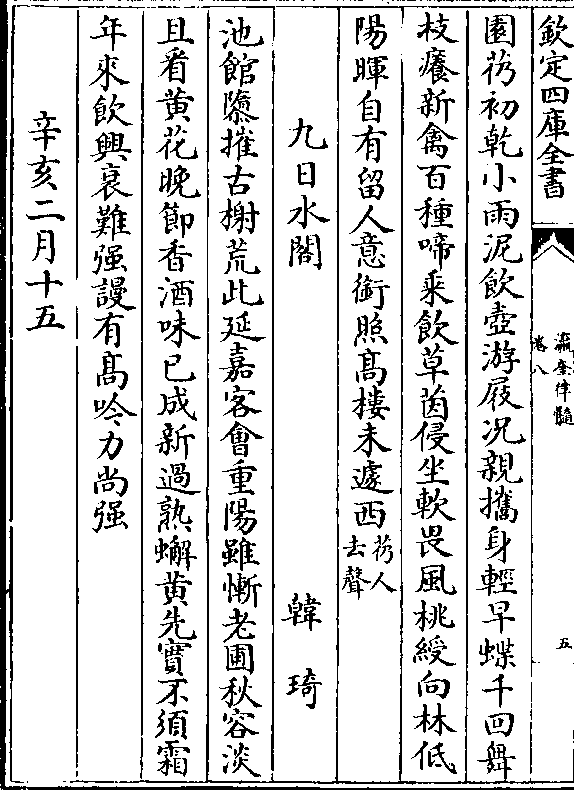 欽定四庫全書
瀛奎律髓
卷八
五
園芿初乾小雨泥飲壺游屐况親攜身輕早蝶千回舞
枝癢新禽百種啼乗飲草茵侵坐軟畏風桃綬向林低
陽暉自有留人意銜照髙樓未遽西芿人去聲
九日水閣 韓琦
池館隳摧古榭荒此延嘉客會重陽雖慚老圃秋容淡
且看黄花晚節香酒味已成新過熟蠏黄先實不須霜
年來飲興衰難强謾有髙吟力尚强
辛亥二月十五